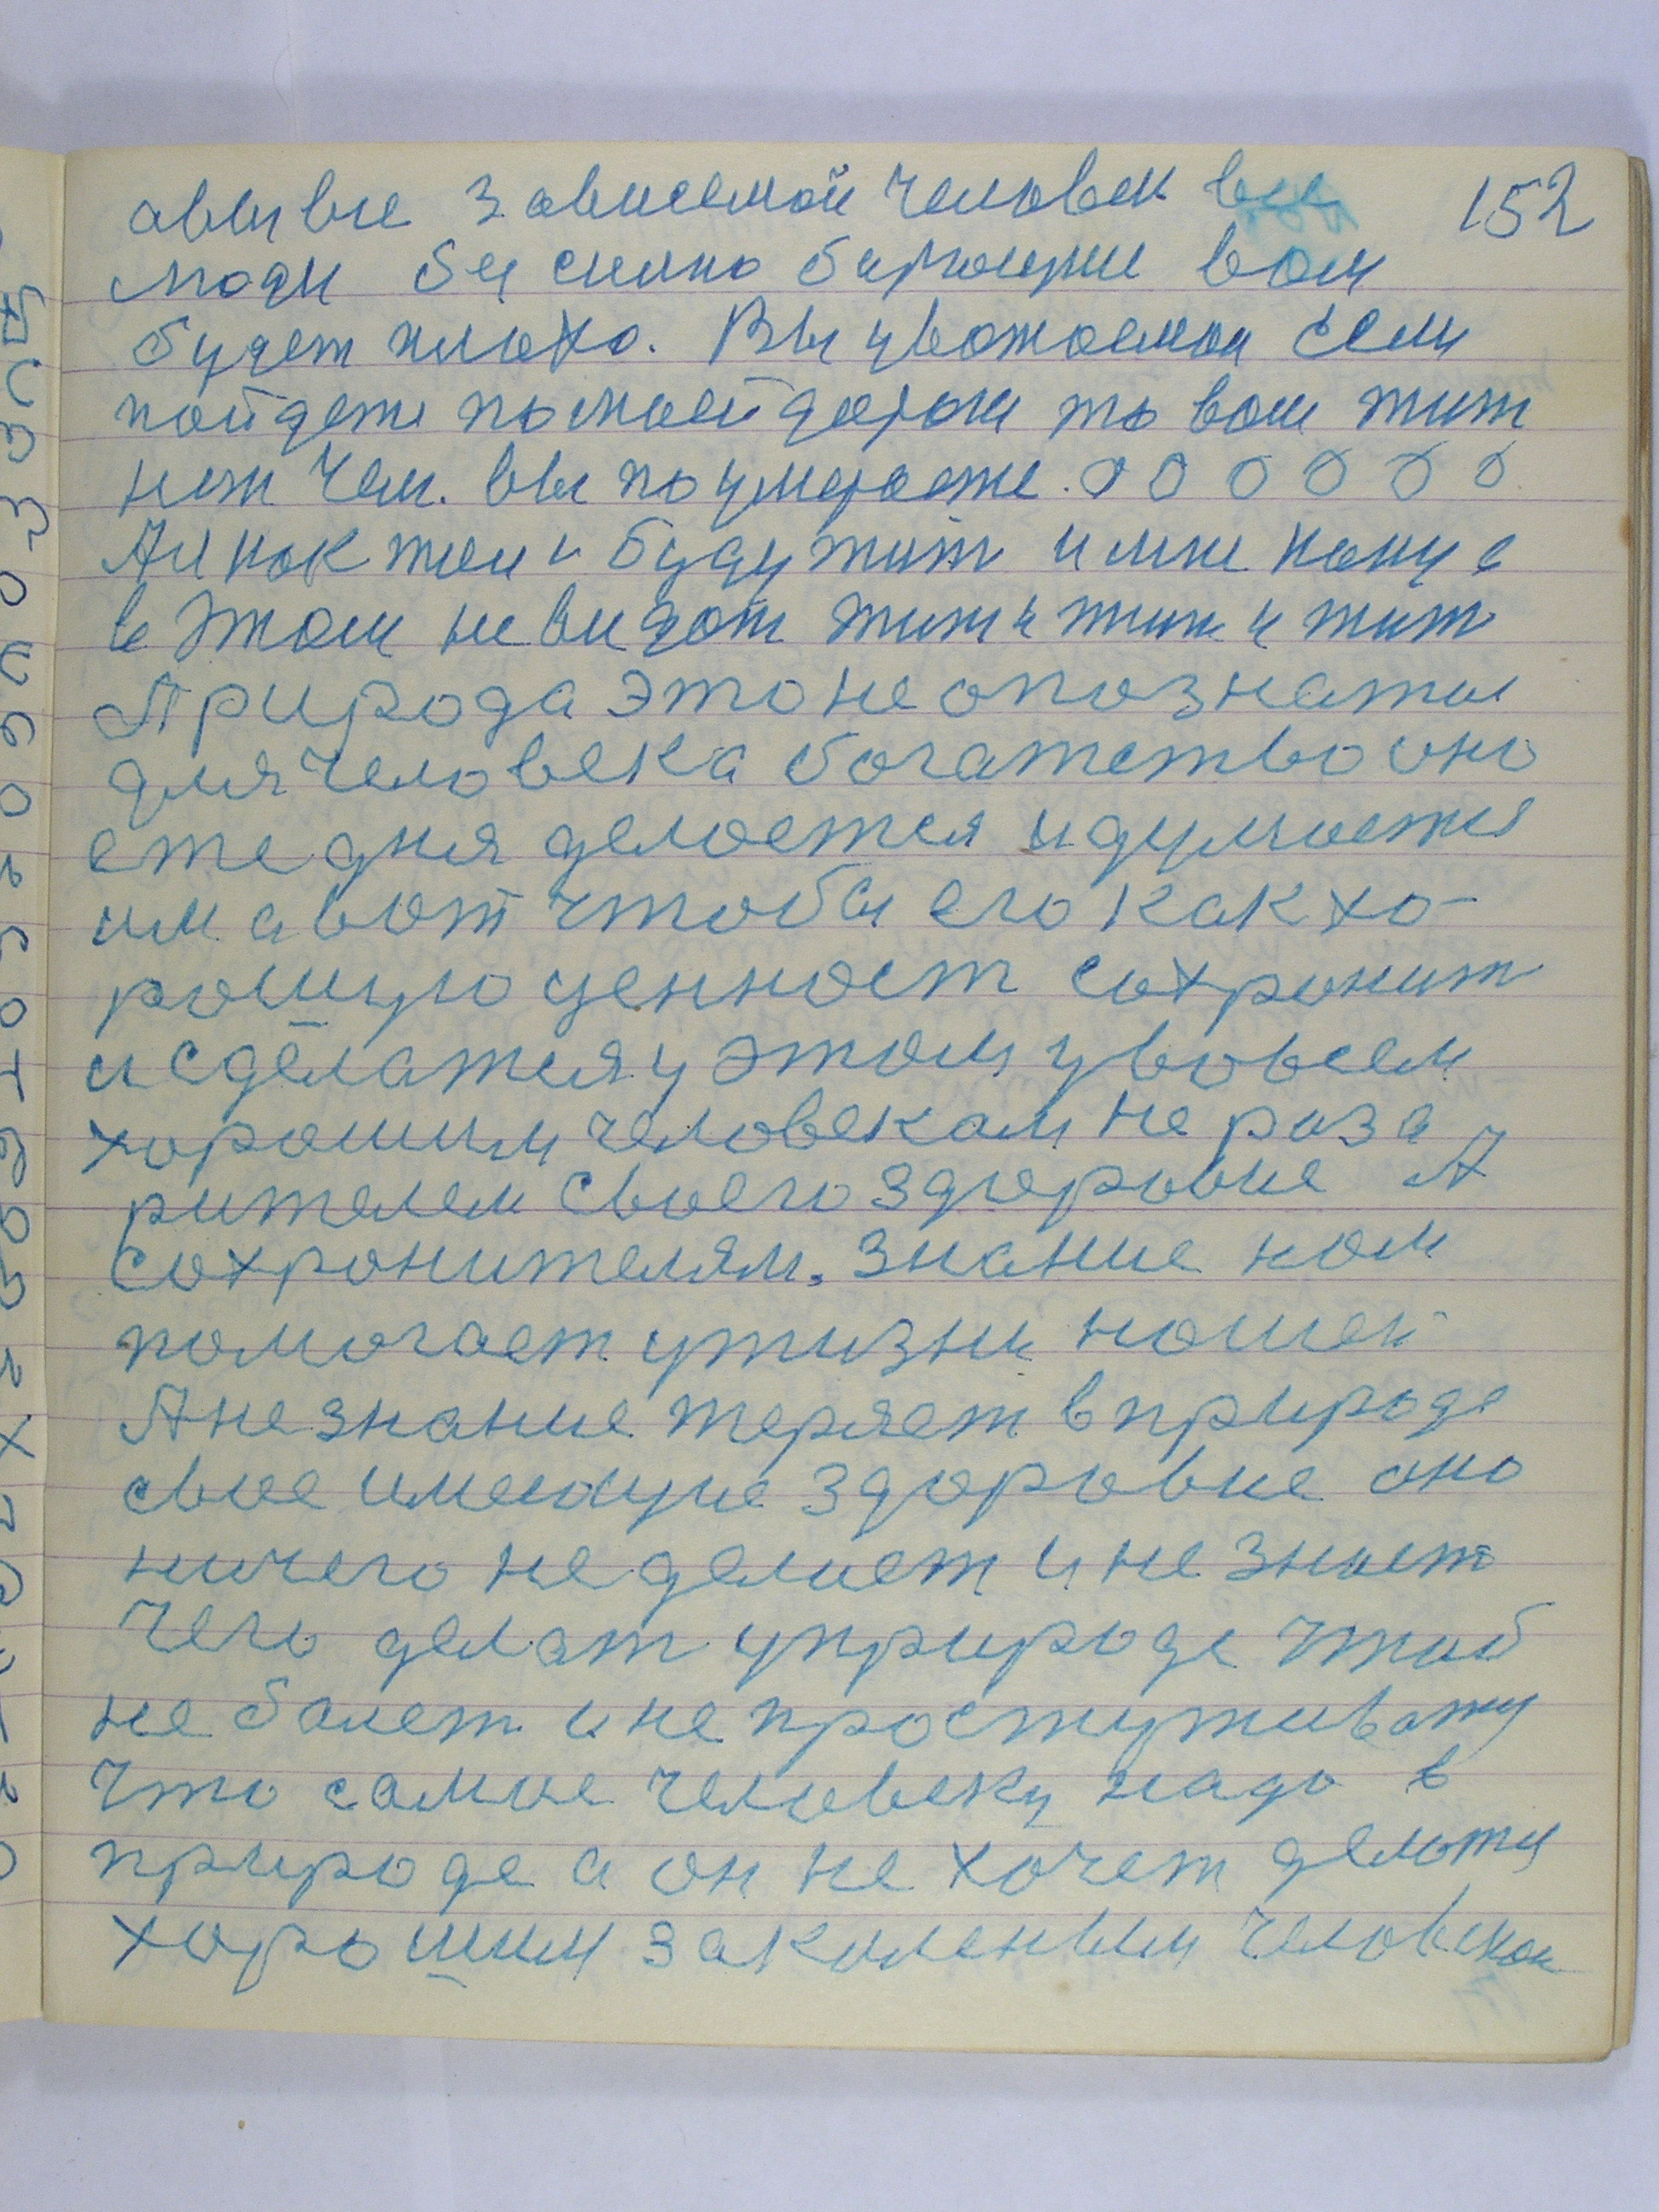 152
авы вне зависемой человек вы
люди бы силно бигющие вам
будет плохо. Вы уважоемаи если
пойдете по моей дороги то вам жит
неж чем. вы поумераете. О О О О О О
А и как жил и буду жит и мне конца
в этом не видат жит и жит и жит
Природа это не опознатое
для человека богатество оно
ежедня делоется и думоется
им а вот чтобы его как хо-
рошую ценност сохронит
и сделатся у этом у вовсем
хорошим человекам не раза
рителем своего здоровие А
сохронителям. Знание нам
помогает у жизни нашей
А не знание теряет в природе
свое имеющие здоровие оно
ничего не делает и не знает
чего делат у природе чтоб
не болет и не простуживатц
что самое человеку надо в
природе а он не хочет делатц
хорошим закаленым человекам